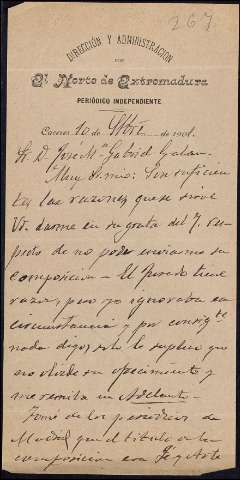 267
DIRECCIÓN Y ADMINISTRACIÓN
DE
El Norte de Extremadura
PERIÓDICO INDEPENDIENTE
Cáceres 10 de 9bre de 1901.
Sr. D. José Mª Gabriel Galan.
Muy Sr. mio: Son suficien
tes las razones que se sirve
Vd. darme en su grata del 7, res-
pecto de no poder enviarme su
composicion. El Jurado tiene
razon, pero yo ignoraba esa
circunstancia y por consigte
nada digo, solo le suplico que
no olvide su ofrecimiento y
me remita su Adelante.
Tomé de los periódicos de
Madrid que el titulo de la
composición era Fe y Arte